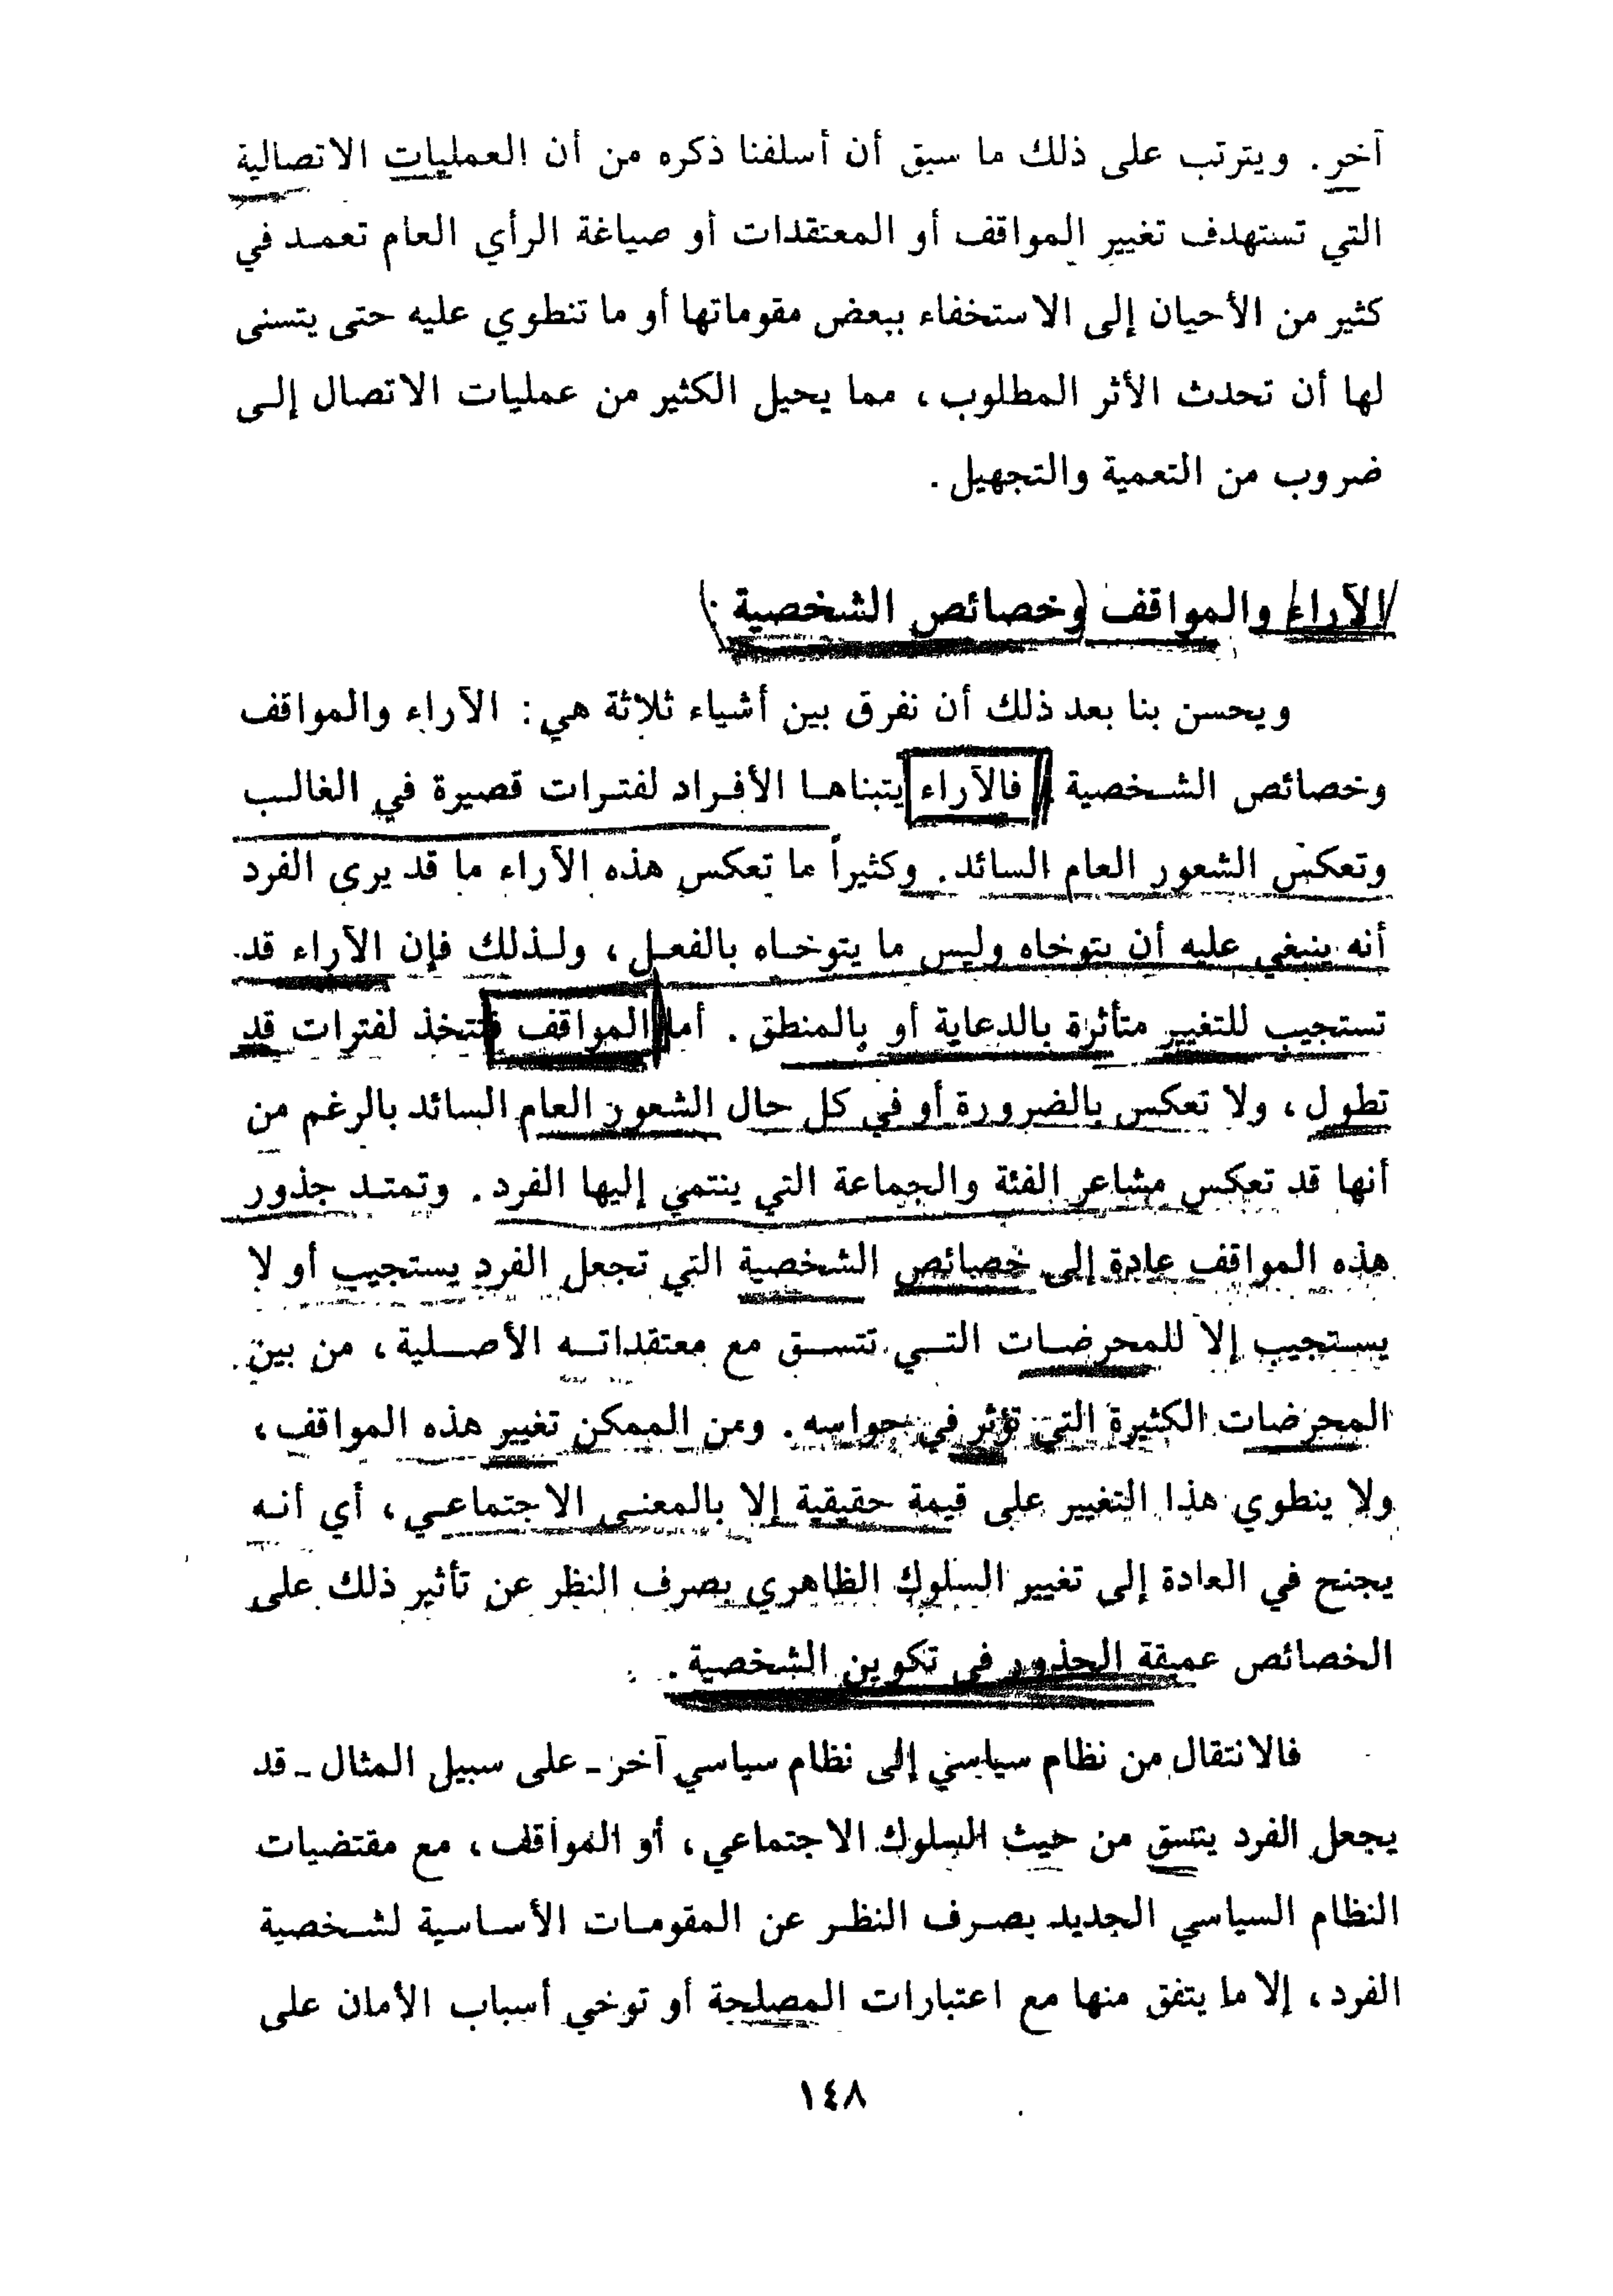 آخر. ويترتب على ذلك ما سبق أن أسلفنا ذكره من أن العمليات الاتصالية
التي تستهدف تغيير المواقف أو المعتقدات أو صياغة الرأي العام تعمد في
كثير من الأحيان إلى الاستخفاء ببعض مقوماتها أو ما تنطوي عليه حتى يتسنى
لها أن تحدث الأثر المطلوب، مما يحيل الكثير من عمليات الاتصال إلى
ضروب من التعمية والتجهيل.
الآراء والمواقف وخصائص الشخصية:
ويحسن بنا بعد ذلك أن نفرق بين أشياء ثلاثة هي: الآراء والمواقف
وخصائص الشخصية. فالآراء يتبناها الأفراد لفترات قصيرة في الغالب
وتعكس الشعور العام السائد. وكثيراً ما تعكس هذه الآراء ما قد يرى الفرد
أنه ينبغي عليه أن يتوخاه وليس ما يتوخاه بالفعل، ولذلك فإن الآراء قد
تستجيب للتغيير متأثرة بالدعاية أو بالمنطق. أما المواقف فتتخذ لفترات قد
تطول، ولا تعكس بالضرورة أو في كل حال الشعور العام السائد بالرغم من
أنها قد تعكس مشاعر الفئة والجماعة التي ينتمي إليها الفرد. وتمتد جذور
هذه المواقف عادة إلى خصائص الشخصية التي تجعل الفرد يستجيب أو لا
يستجيب إلا للمحرضات التي تتسق مع معتقداته الأصلية، من بين
المحرضات الكثيرة التي تؤثر في حواسه. ومن الممكن تغيير هذه المواقف،
ولا ينطوي هذا التغيير على قيمة حقيقية إلا بالمعنى الاجتماعي، أي أنه
يجنح في العادة إلى تغيير السلوك الظاهري بصرف النظر عن تأثير ذلك على
الخصائص عميقة الجذور في تكوين الشخصية.
فالانتقال من نظام سياسي إلى نظام سياسي آخر - على سبيل المثال - قد
يجعل الفرد يتسق من حيث السلوك الاجتماعي، أو المواقف، مع مقتضيات
النظام السياسي الجديد بصرف النظر عن المقومات الأساسية لشخصية
الفرد، إلا ما يتفق منها مع اعتبارات المصلحة أو توخي أسباب الأمان على
١٤٨